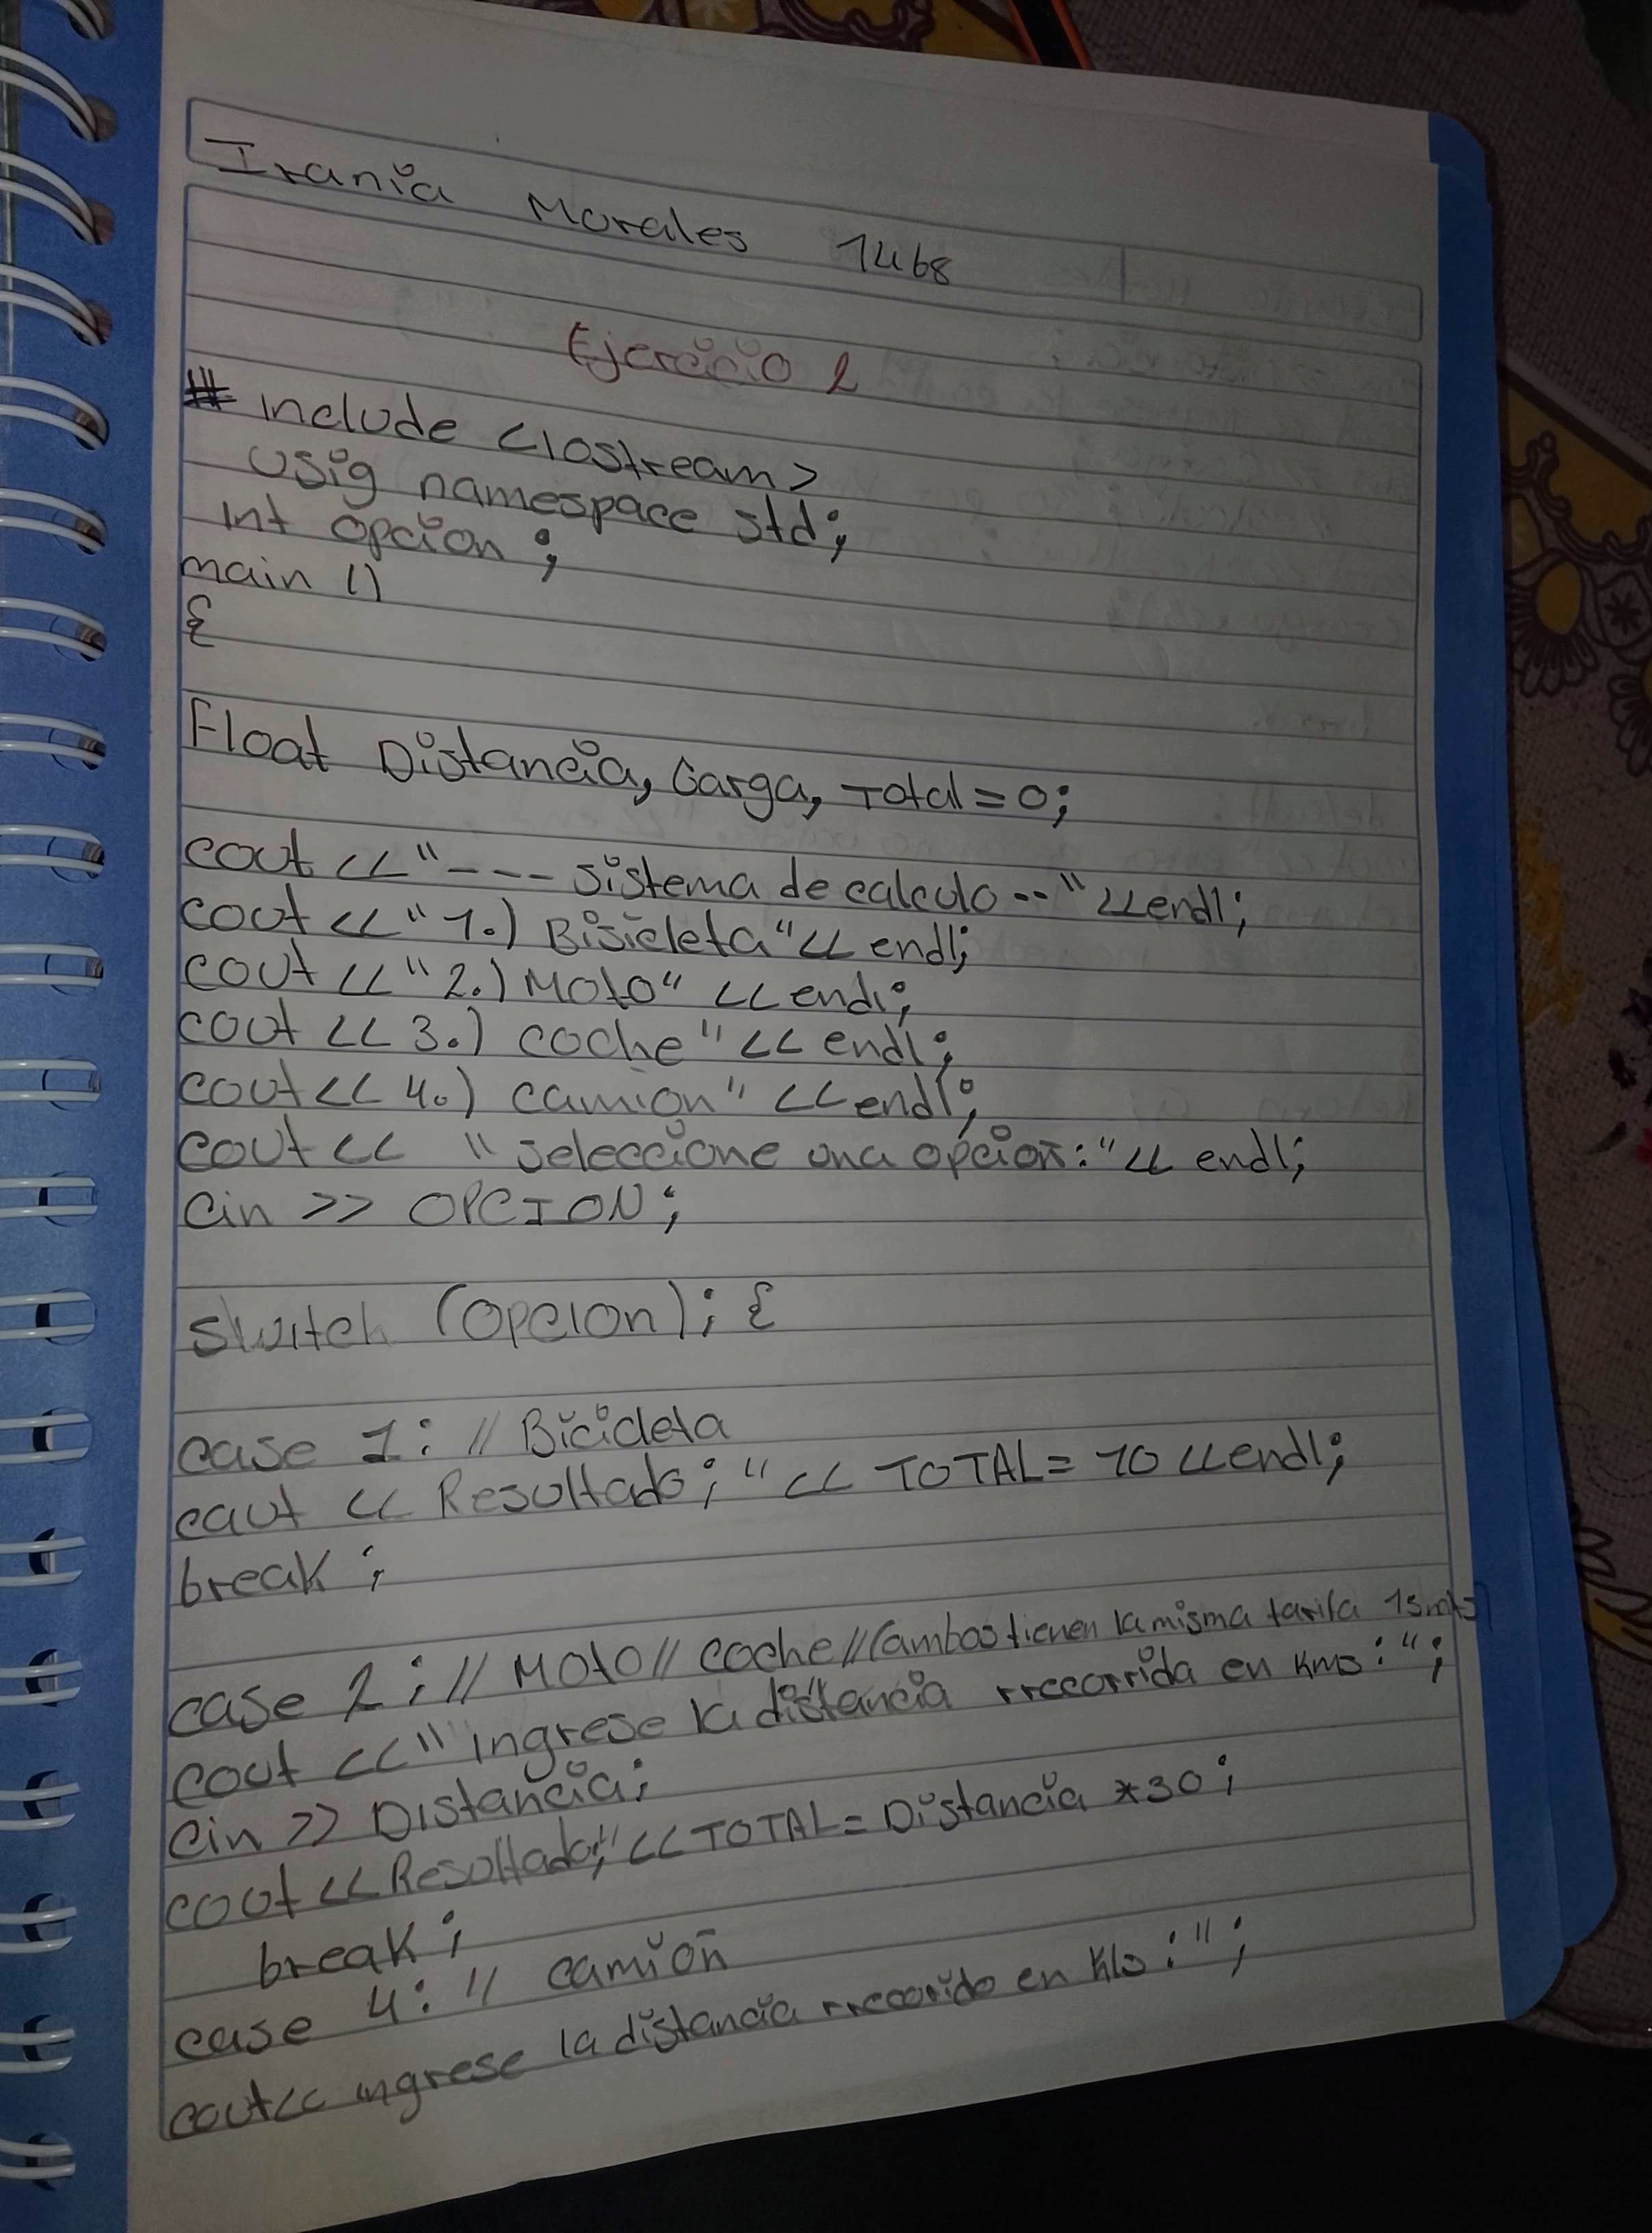 Irania Morales 1468
Ejercicio 2
# include <iostream>
usig namespace std;
int opcion ;
main ()
{
Float Distancia, Carga, Total=0;
cout << "--- sistema de calculo --" <<endl;
cout << "1.) Bisicleta" << endl;
cout << "2.) Moto" << endl;
cout << 3.) coche" << endl;
cout << 4.) camion" << endl;
cout << "seleccione una opcion:" << endl;
cin >> OPCION;
switch (opcion); {
case 1: // Bicicleta
caut << Resultado; " << TOTAL= 10 <<endl;
break ;
case 2: // Moto// coche//(ambos tienen la misma tarifa
cout <<" ingrese la distancia rrecorrida en Kms:";
cin >> Distancia;
cout << Resultado;" << TOTAL= Distancia *30;
break ;
case 4: // camión
cout<< ingrese la distancia rrecorrido en Kls:";